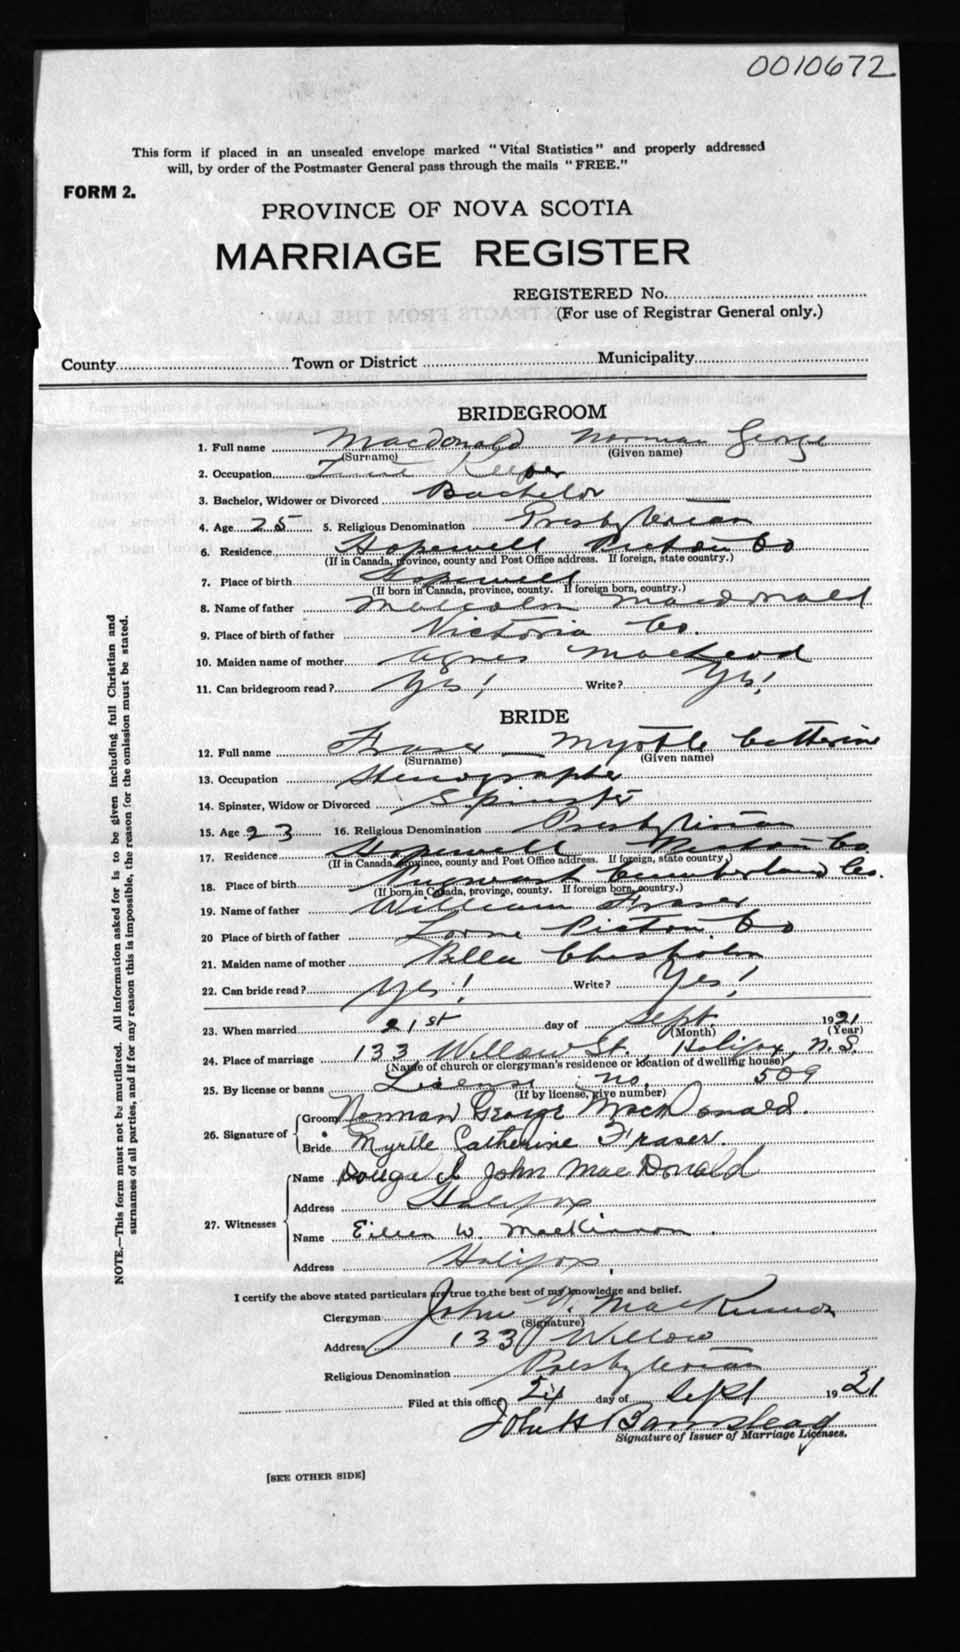 0010672
This form if placed in an unsealed envelope marked "Vital Statistics" and properly addressed
will, by order of the Postmaster General pass through the mails "FREE."
FORM 2.
PROVINCE OF NOVA SCOTIA
MARRIAGE REGISTER
REGISTERED No.
(For use of Registrar General only.)
County Town or District Municipality
BRIDEGROOM
1. Full name Macdonald Norman George
(Surname) (Given name)
2. Occupation Time Keeper
3. Bachelor, Widower or Divorced Bachelor
4. Age 25 5. Religious Denomination Presbyterian
6. Residence Hopewell Pictou Co
(If in Canada, province, county and Post Office address. If foreign, state country.)
7. Place of birth Hopewell
(If born in Canada, province, county. If foreign born, country.)
8. Name of father Malcolm Macdonald
9. Place of birth of father Victoria Co.
10. Maiden name of mother Agnes MacLeod
11. Can bridegroom read? Yes! Write? Yes!
BRIDE
12. Full name Fraser Myrtle Catherine
(Surname) (Given name)
13. Occupation Stenographer
14. Spinster, Widow or Divorced Spinster
15. Age 23 16. Religious Denomination Presbyterian
17. Residence Hopewell Pictou Co.
(If in Canada, province, county and Post Office address. If foreign, state country.)
18. Place of birth Pugwash Cumberland Co.
(If born in Canada, province, county. If foreign born, country.)
19. Name of father William Fraser
20 Place of birth of father Lorne Pictou Co
21. Maiden name of mother Bella Chisholm
22. Can bride read? Yes! Write? Yes!
23. When married 21st day of Sept. 1921
(Month) (Year)
24. Place of marriage 133 Willow St., Halifax, N.S.
(Name of church or clergyman's residence or location of dwelling house)
25. By license or banns License no. 509
(If by license, give number)
26. Signature of Groom Norman George MacDonald.
Bride Myrtle Catherine Fraser.
27. Witnesses Name Dougald John MacDonald
Address Halifax
Name Eileen W. MacKinnon.
Address Halifax.
I certify the above stated particulars are true to the best of my knowledge and belief.
Clergyman John MacKinnon
(Signature)
Address 133 Willow
Religious Denomination Presbyterian
Filed at this office day of Sept 1921
John H Barnstead
Signature of Issuer of Marriage Licenses.
[SEE OTHER SIDE]
NOTE.—This form must not be mutilated. All information asked for is to be given including full Christian and
surnames of all parties, and if for any reason this is impossible, the reason for the omission must be stated.